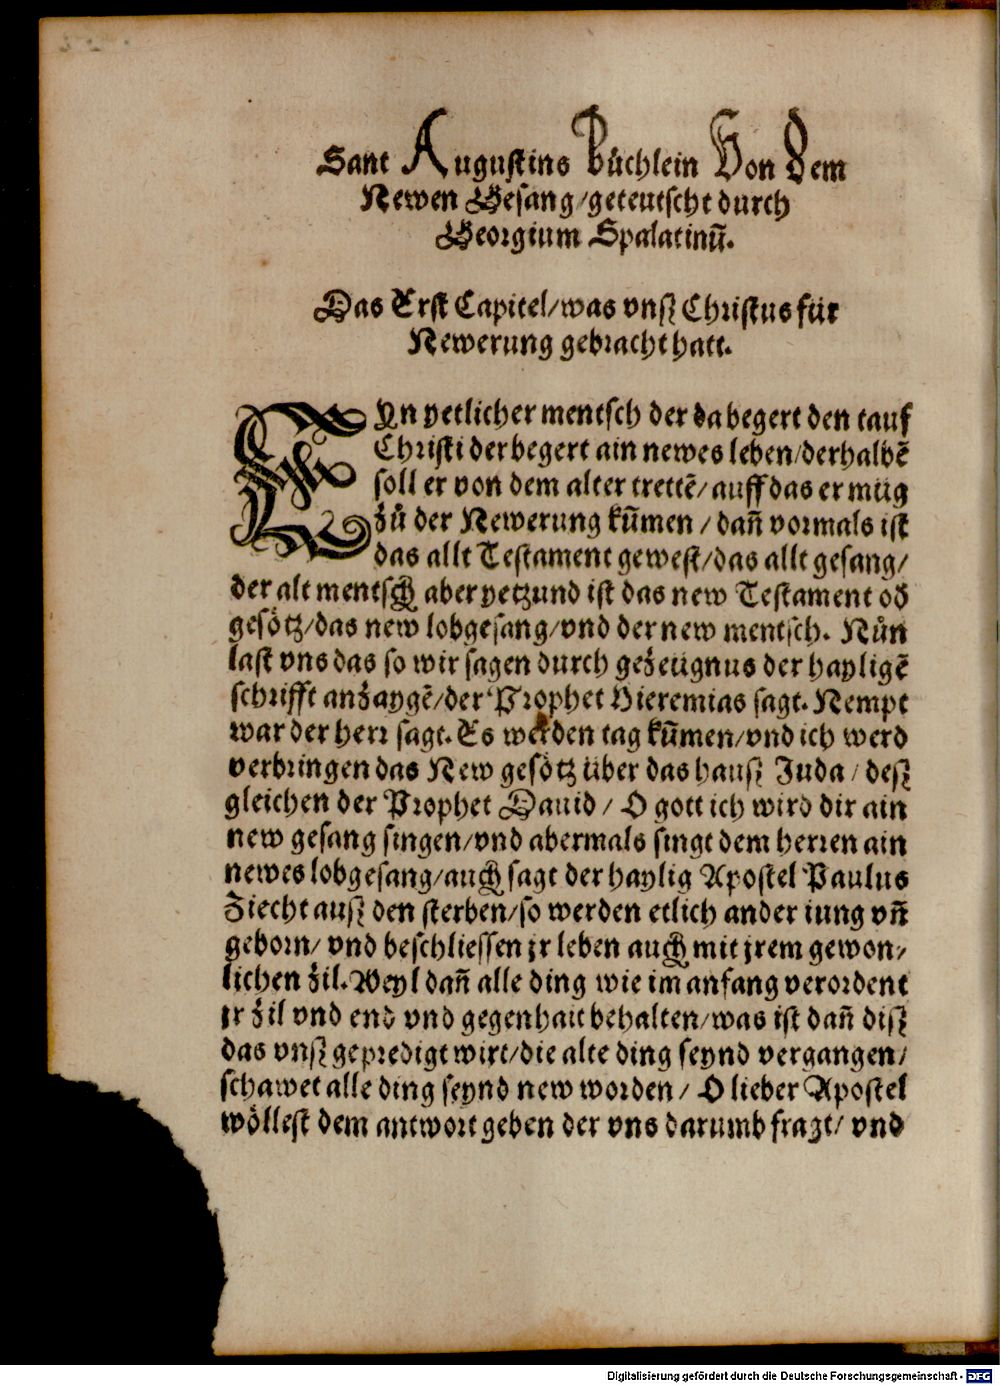 Sant Augustins Büchlein Von Dem
Newen Gesang/geteutscht durch
Georgium Spalatinū.
Das Erst Capitel/was vnsz Christus für
Newerung gebracht hatt.
EYn yetlicher mentsch der da begert den tauf
Christi der begert ain newes leben/derhalbē
soll er von dem alter trettē/auff das er müg
zů der Newerung kūmen/dañ vormals ist
das allt Testament gewest/das allt gesang/
der alt mentsch aber yetzund ist das new Testament oď
gesötz/das new lobgesang/vnd der new mentsch. Nůn
last vns das so wir sagen durch gezeügnus der hayligē
schrifft anzaygē/der Prophet Hieremias sagt. Nempt
war der herr sagt. Es werden tag kūmen/vnd ich werd
verbringen das New gesötz über das hausz Juda/desz
gleichen der Prophet Dauid/O gott ich wird dir ain
new gesang singen/vnd abermals singt dem herren ain
newes lobgesang/auch sagt der haylig Apostel Paulus
Ziecht ausz den sterben/so werden etlich ander iung vñ
geborn/vnd beschliessen jr leben auch mit jrem gewon⸗
lichen zil. Weyl dañ alle ding wie im anfang verordent
jr zil vnd end vnd gegenhait behalten/was ist dañ disz
das vnsz gepredigt wirt/die alte ding seynd vergangen/
schawet alle ding seynd new worden/O lieber Apostel
wöllest dem antwort geben der vns darumb fragt/vnd
Digitalisierung gefördert durch die Deutsche Forschungsgemeinschaft - DFG